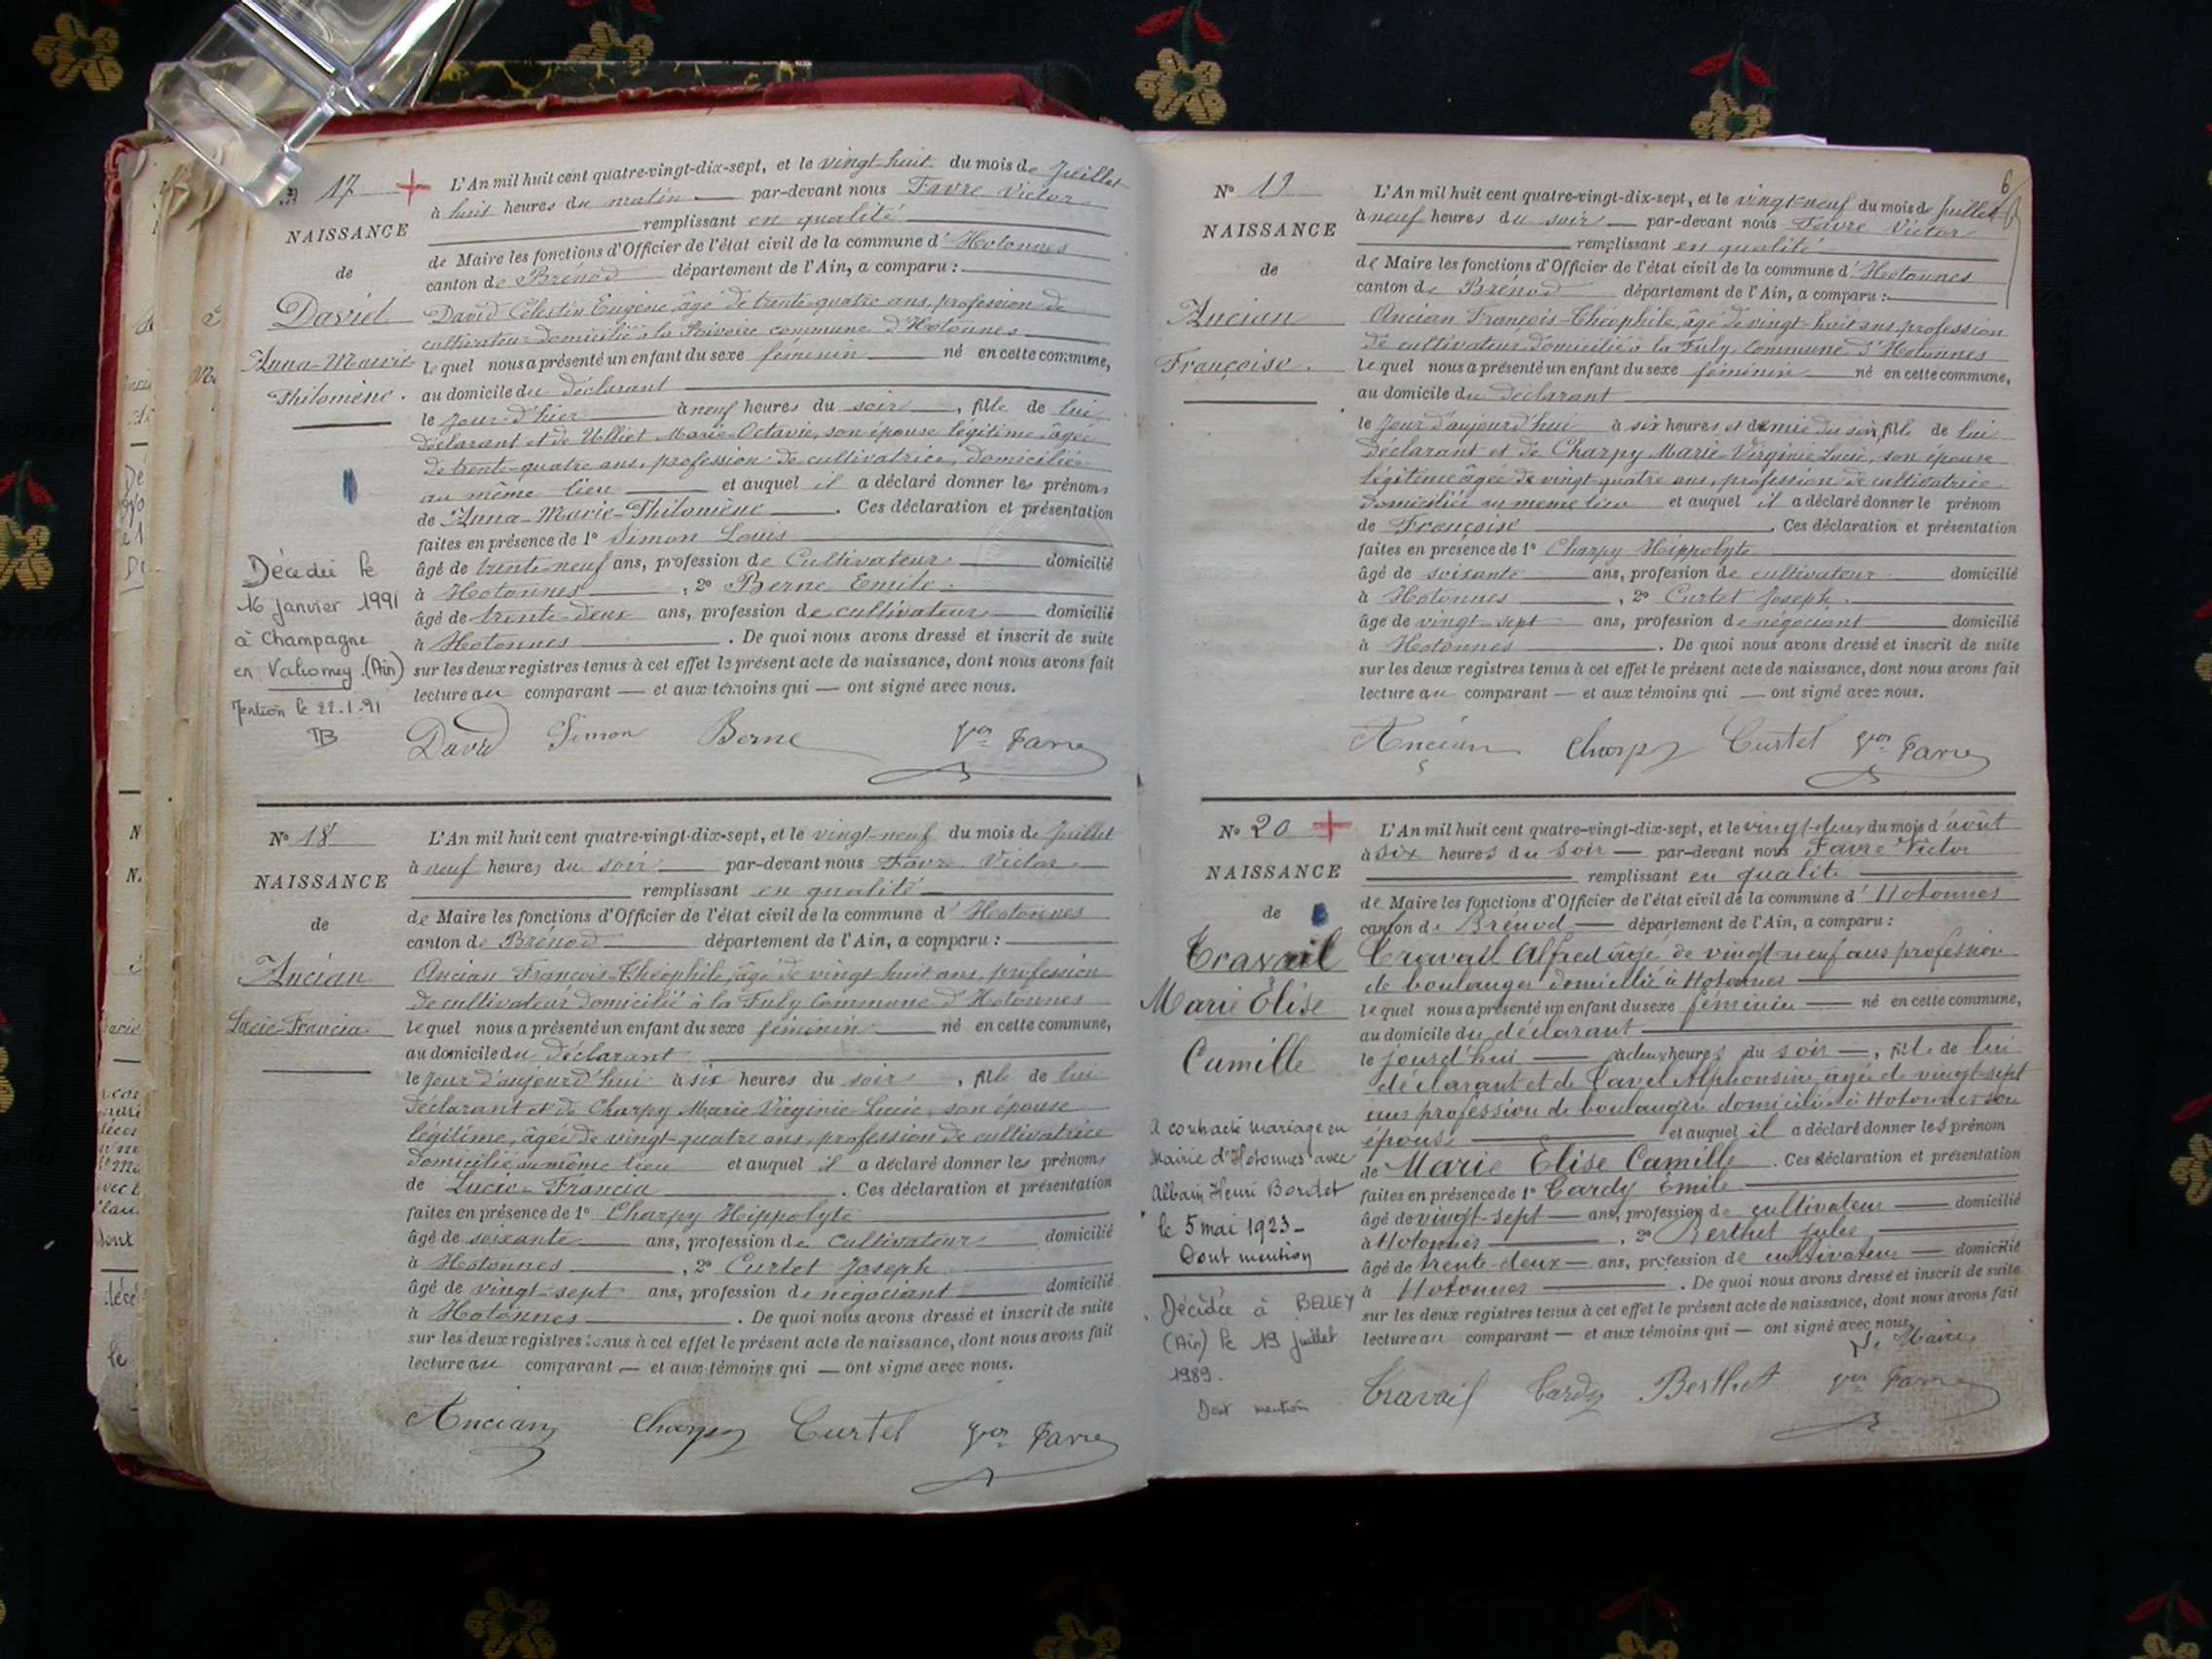 N° 17
NAISSANCE
de
David
Anna-Marie
Philomène.
L'An mil huit cent quatre-vingt-dix-sept, et le vingt-huit du mois de Juillet
à huit heures du matin par-devant nous Favre Victor
remplissant en qualité
de Maire les fonctions d'Officier de l'état civil de la commune d'Hotonnes
canton de Brénod département de l'Ain, a comparu :
David Célestin Eugène, âgé de trente-quatre ans, profession de
cultivateur domicilié à la Rivoire commune d'Hotonnes
lequel nous a présenté un enfant du sexe féminin né en cette commune,
au domicile du déclarant
le jour d'hier à neuf heures du soir, fille de lui
déclarant et de Ulliet Marie-Octavie, son épouse légitime âgée
de trente-quatre ans, profession de cultivatrice, domiciliée
au même lieu et auquel il a déclaré donner les prénoms
de Anna-Marie-Philomène. Ces déclaration et présentation
faites en présence de 1° Simon Louis
âgé de trente-neuf ans, profession de Cultivateur domicilié
à Hotonnes, 2° Berne Emile
âgé de trente-deux ans, profession de cultivateur domicilié
à Hotonnes. De quoi nous avons dressé et inscrit de suite
sur les deux registres tenus à cet effet le présent acte de naissance, dont nous avons fait
lecture au comparant — et aux témoins qui — ont signé avec nous.
Décédée le
16 janvier 1991
à Champagne
en Valromey (Ain)
Mention le 22.1.91
David Simon Berne Vor Favre
N° 18
NAISSANCE
de
Ancian
Lucie-Francia
L'An mil huit cent quatre-vingt-dix-sept, et le vingt-neuf du mois de Juillet
à neuf heures du soir par-devant nous Favre Victor
remplissant en qualité
de Maire les fonctions d'Officier de l'état civil de la commune d'Hotonnes
canton de Brénod département de l'Ain, a comparu :
Ancian François-Théophile, âgé de vingt-huit ans, profession
de cultivateur domicilié à la Fuly commune d'Hotonnes
lequel nous a présenté un enfant du sexe féminin né en cette commune,
au domicile du déclarant
le jour d'aujourd'hui à six heures du soir, fille de lui
déclarant et de Charpy Marie Virginie Lucie, son épouse
légitime, âgée de vingt-quatre ans, profession de cultivatrice
domiciliée au même lieu et auquel il a déclaré donner les prénoms
de Lucie-Francia. Ces déclaration et présentation
faites en présence de 1° Charpy Hippolyte
âgé de soixante ans, profession de Cultivateur domicilié
à Hotonnes, 2° Curtet Joseph
âgé de vingt-sept ans, profession de négociant domicilié
à Hotonnes. De quoi nous avons dressé et inscrit de suite
sur les deux registres tenus à cet effet le présent acte de naissance, dont nous avons fait
lecture au comparant — et aux témoins qui — ont signé avec nous.
Ancian Charpy Curtet Vor Favre
6
N° 19
NAISSANCE
de
Ancian
Françoise.
L'An mil huit cent quatre-vingt-dix-sept, et le vingt-neuf du mois de Juillet
à neuf heures du soir par-devant nous Favre Victor
remplissant en qualité
de Maire les fonctions d'Officier de l'état civil de la commune d'Hotonnes
canton de Brénod département de l'Ain, a comparu :
Ancian François-Théophile, âgé de vingt-huit ans, profession
de cultivateur domicilié à la Fuly, commune d'Hotonnes
lequel nous a présenté un enfant du sexe féminin né en cette commune,
au domicile du déclarant
le jour d'aujourd'hui à six heures et demie du soir, fille de lui
déclarant et de Charpy Marie-Virginie Lucie, son épouse
légitime âgée de vingt quatre ans, profession de cultivatrice
domiciliée au même lieu et auquel il a déclaré donner le prénom
de Françoise. Ces déclaration et présentation
faites en présence de 1° Charpy Hippolyte
âgé de soixante ans, profession de cultivateur domicilié
à Hotonnes, 2° Curtet Joseph.
âgé de vingt-sept ans, profession de négociant domicilié
à Hotonnes. De quoi nous avons dressé et inscrit de suite
sur les deux registres tenus à cet effet le présent acte de naissance, dont nous avons fait
lecture au comparant — et aux témoins qui — ont signé avec nous.
Ancian Charpy Curtet Vor Favre
N° 20
NAISSANCE
de
Travail
Marie Elise
Camille
L'An mil huit cent quatre-vingt-dix-sept, et le vingt-deux du mois d'août
à six heures du soir — par-devant nous Favre Victor
remplissant en qualité
de Maire les fonctions d'Officier de l'état civil de la commune d'Hotonnes
canton de Brénod — département de l'Ain, a comparu :
Travail Alfred âgé de vingt-neuf ans profession
de boulanger domicilié à Hotonnes
lequel nous a présenté un enfant du sexe féminin — né en cette commune,
au domicile du déclarant
le jourd'hui — à deux heures du soir —, fille de lui
déclarant et de Cavel Alphonsine âgée de vingt-sept
ans profession de boulangère domiciliée à Hotonnes son
épouse et auquel il a déclaré donner les prénom
de Marie Elise Camille. Ces déclaration et présentation
faites en présence de 1° Cardy Emile
âgé de vingt-sept — ans, profession de cultivateur — domicilié
à Hotonnes, 2° Berthet Jules
âgé de trente-deux — ans, profession de cultivateur — domicilié
à Hotonnes. De quoi nous avons dressé et inscrit de suite
sur les deux registres tenus à cet effet le présent acte de naissance, dont nous avons fait
lecture au comparant — et aux témoins qui — ont signé avec nous.
Le Maire,
A contracté mariage en
Mairie d'Hotonnes avec
Albain Henri Bordet
le 5 mai 1923-
Dont mention
Décédée à BELLEY
(Ain) le 19 juillet
1989.
Dont mention
Travail Cardy Berthet Vor Favre